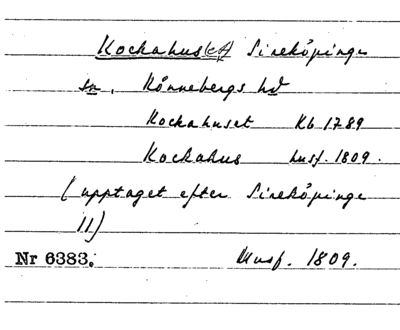 Kockahus(et) Sireköpinge
sn, Rönnebergs hd
Kockahuset Kb 1789
Kockahus husf. 1809.
(upptaget efter Sireköpinge
11)
Nr 6383. Husf. 1809.